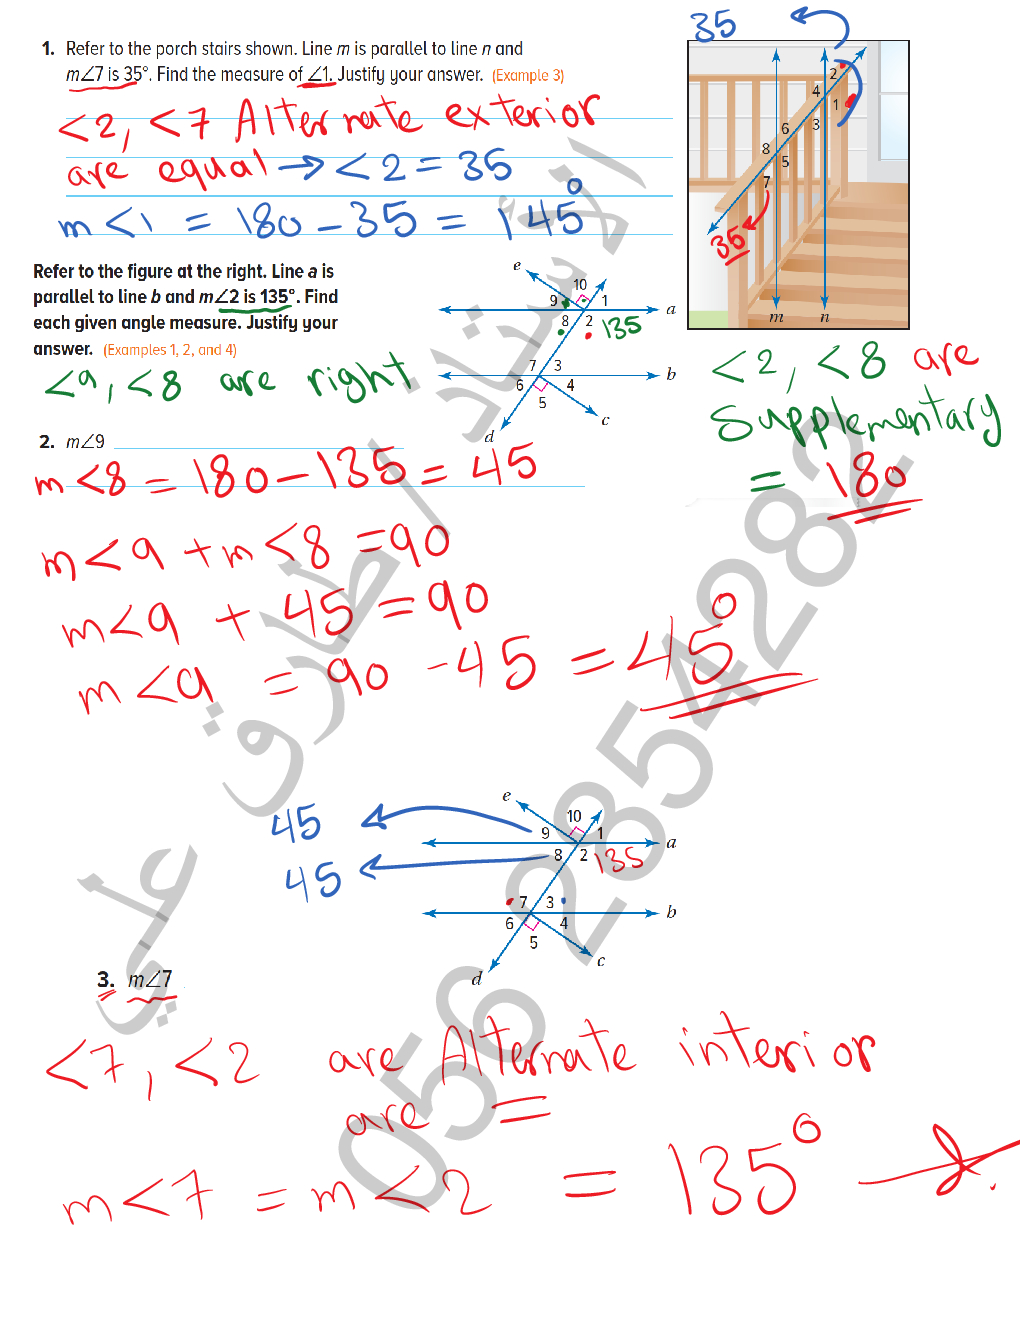 35
1. Refer to the porch stairs shown. Line m is parallel to line n and
m∠7 is 35°. Find the measure of ∠1. Justify your answer. (Example 3)
<2, <7 Alternate exterior
are equal → <2 = 35
m<1 = 180 - 35 = 145°
2
4
1
3
6
8
5
7
35
m n
Refer to the figure at the right. Line a is
parallel to line b and m∠2 is 135°. Find
each given angle measure. Justify your
answer. (Examples 1, 2, and 4)
<9, <8 are right
e
10
9 1
a
8 2 135
7 3
b
6 4
5
c
d
<2, <8 are
Supplementary
= 180
2. m∠9
m<8 = 180 - 135 = 45
m<9 + m<8 = 90
m<9 + 45 = 90
m<9 = 90 - 45 = 45°
e
45
10
9 1
a
45
8 2 135
7 3
b
6 4
5
c
d
3. m∠7
<7, <2 are Alternate interior
are =
m<7 = m<2 = 135°
الأستاذ طارق علي
056 2354282